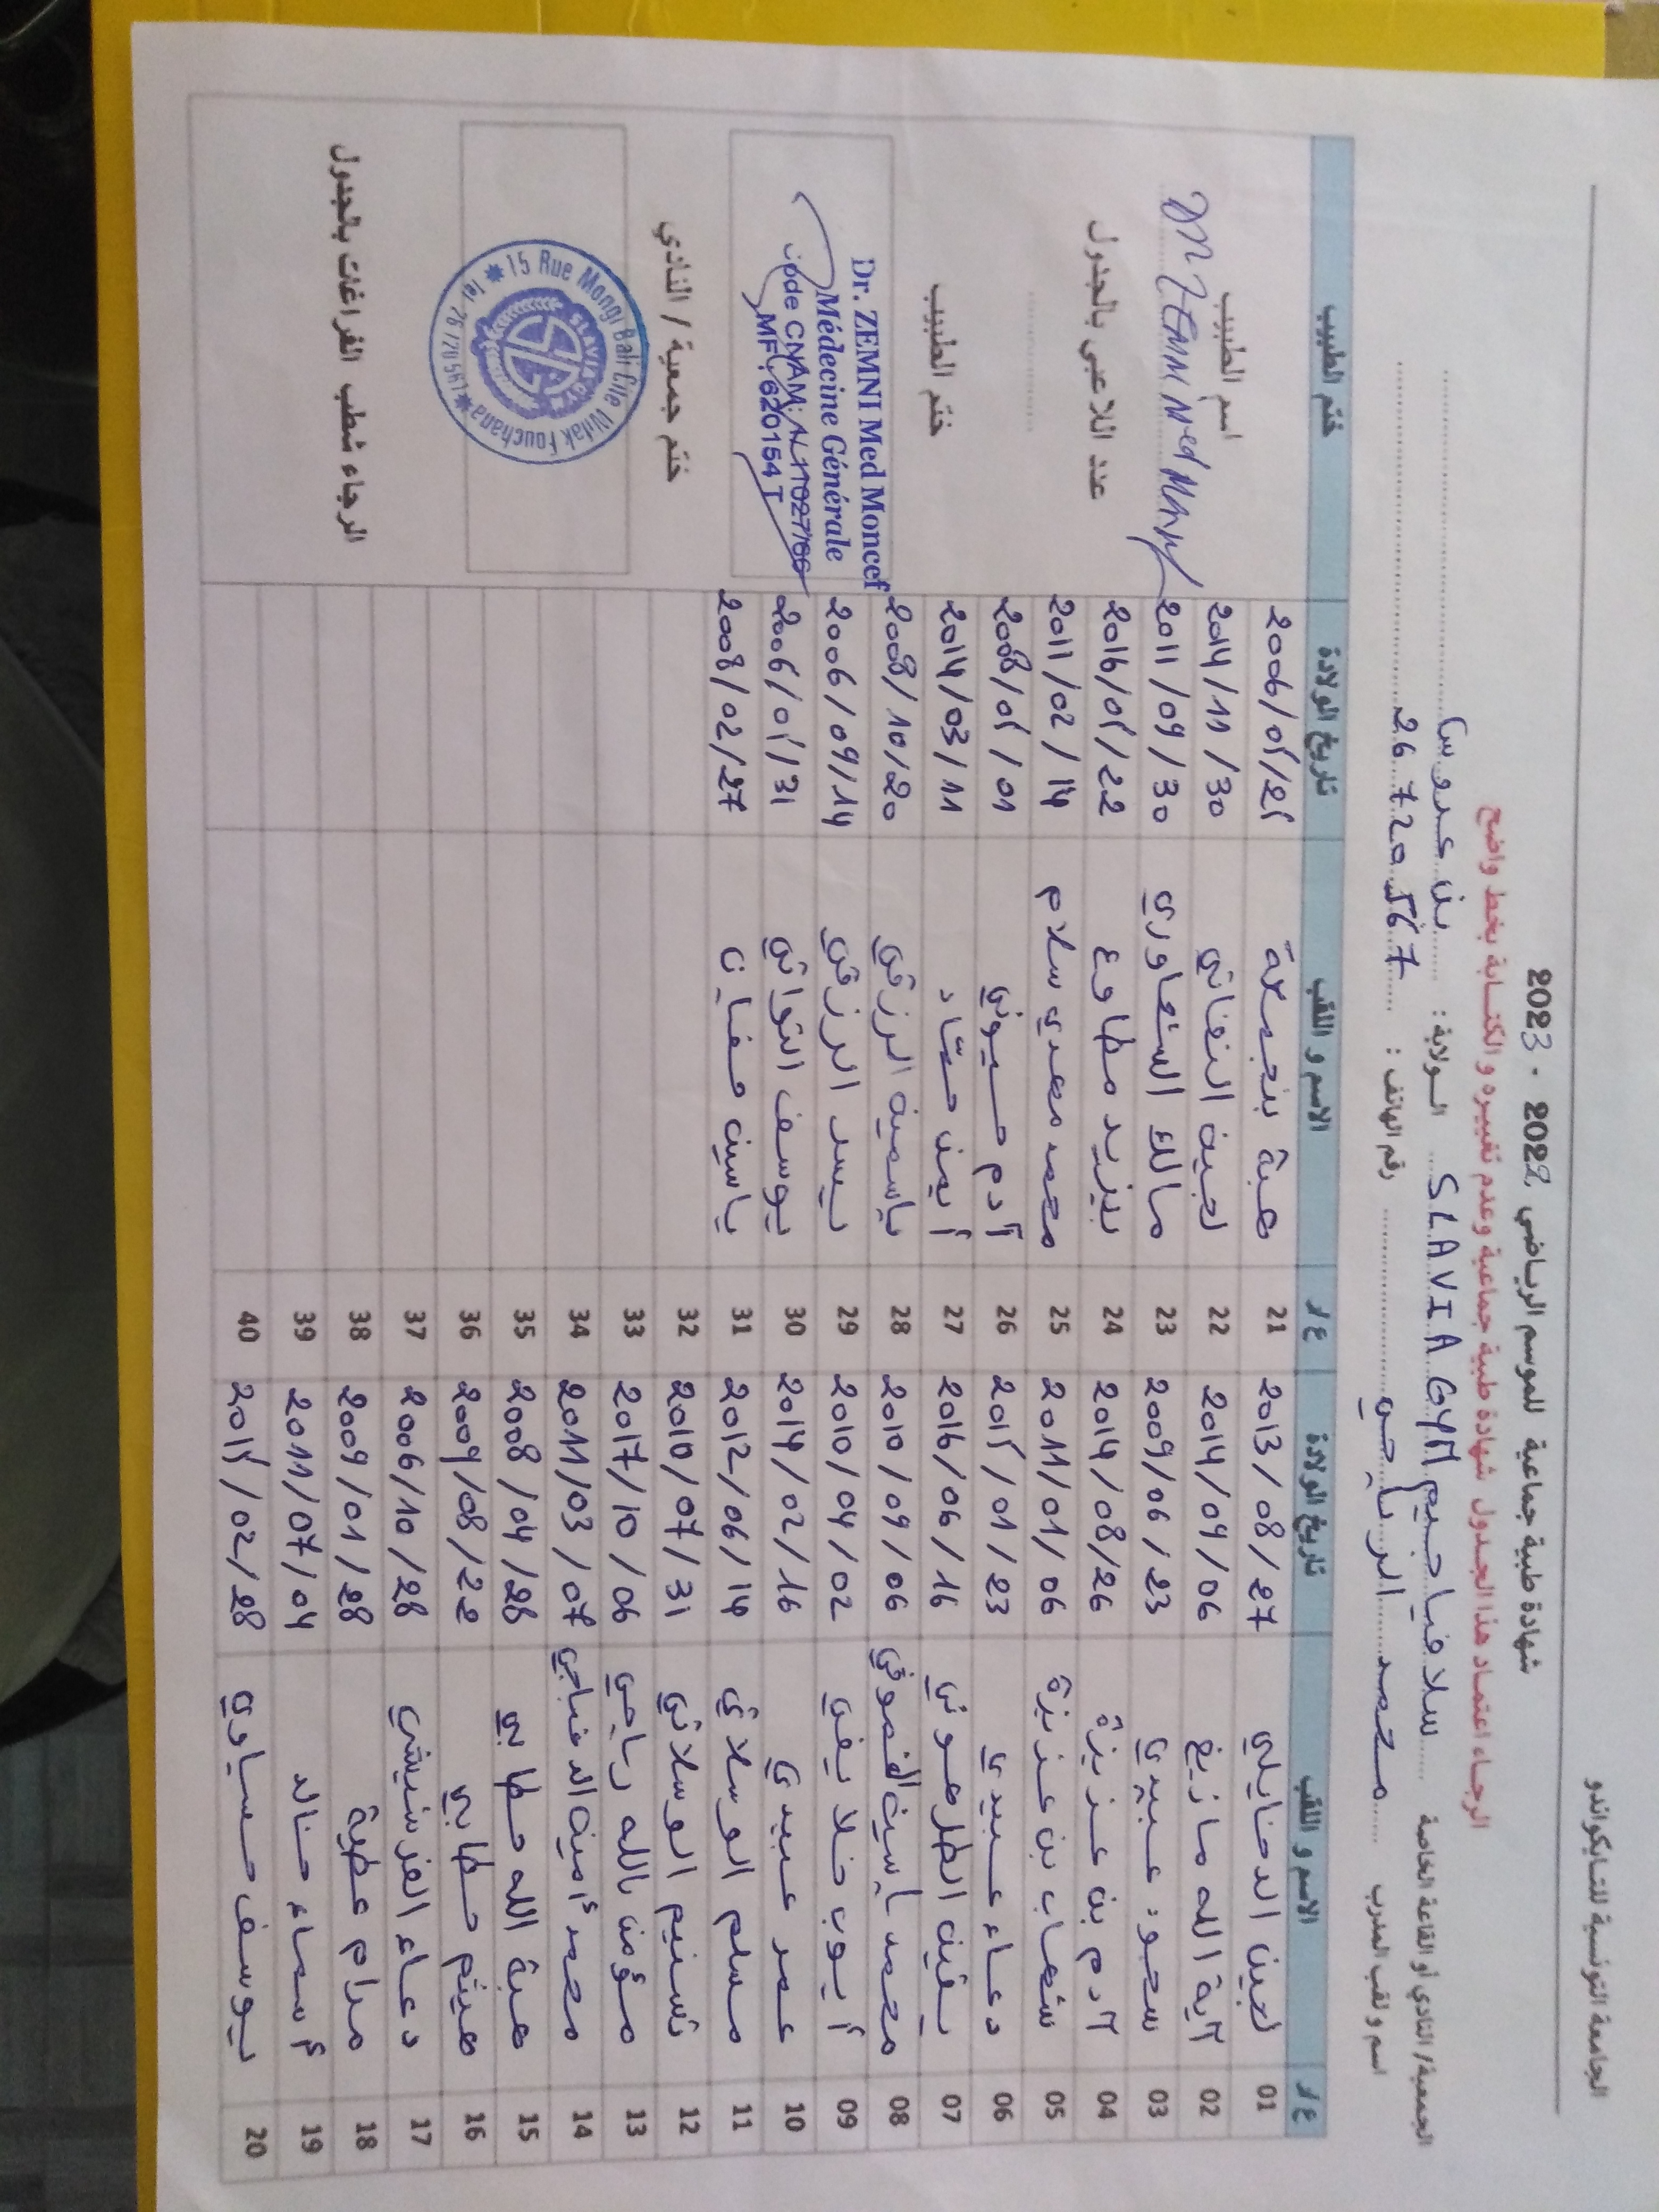 الجامعة التونسية للتايكواندو
شهادة طبية جماعية للموسم الرياضي 2022 - 2023
الرجاء اعتماد هذا الجدول شهادة طبية جماعية وعدم تغييره و الكتابة بخط واضح
الجمعية/ النادي أو القاعة الخاصة سلافيا جيم SLAVIA GYM الولاية : بن عروس
اسم و لقب المدرب محمد الرياحي رقم الهاتف : 26 720 567
ع/ر الاسم و اللقب تاريخ الولادة ع/ر الاسم و اللقب تاريخ الولادة ختم الطبيب
01 لجين الدخايلي 2013/08/27 21 هبة بنجمعة 2006/05/25
02 آية الله مازيغ 2014/09/06 22 لجين النفاتي 2014/11/30
03 سجود عبيدي 2009/06/23 23 مالك السعاوري 2011/09/30
04 آدم بن عزيزة 2014/08/26 24 يزيد مطاوع 2016/05/22
05 شهاب بن عزيزة 2011/01/06 25 محمد مهدي سلام 2011/02/14
06 دعاء عبيدي 2015/01/23 26 آدم حسيوني 2008/05/01
07 يقين الطرهوني 2016/06/16 27 أيمن حماد 2014/03/11
08 محمد ياسين 2010/09/06 28 ياسمين الرزقي 2008/10/20
09 أيوب خلايفي 2010/04/02 29 الرزقي 2006/09/14
10 عمر عبيدي 2014/02/16 30 يوسف التواتي 2006/05/31
11 مسلم الوسلاتي 2012/06/14 31 ياسين 2008/02/27
12 تسنيم الوسلاتي 2010/07/31 32
13 مؤمن بالله رياحي 2017/10/06 33
14 محمد أمين الدخناجي 2011/03/07 34
15 هبة الله حطابي 2008/04/28 35
16 هيثم حطابي 2009/08/22 36
17 دعاء الفرشيشي 2006/10/28 37
18 مرام عطية 2009/01/28 38
19 أسماء خالد 2011/07/04 39
20 يوسف حساوي 2015/02/28 40
اسم الطبيب
Dr ZEMNI Med
عند اللاعبي بالجدول
ختم الطبيب
Dr. ZEMNI Med Moncef
Médecine Générale
Code CNAM: 1/11027/66
MF: 620154 T
ختم جمعية / النادي
15 Rue Mongi Bali Cite Wifak Fouchana
Tel: 26 720 567
SLAVIA GYM
الرجاء شطب الفراغات بالجدول